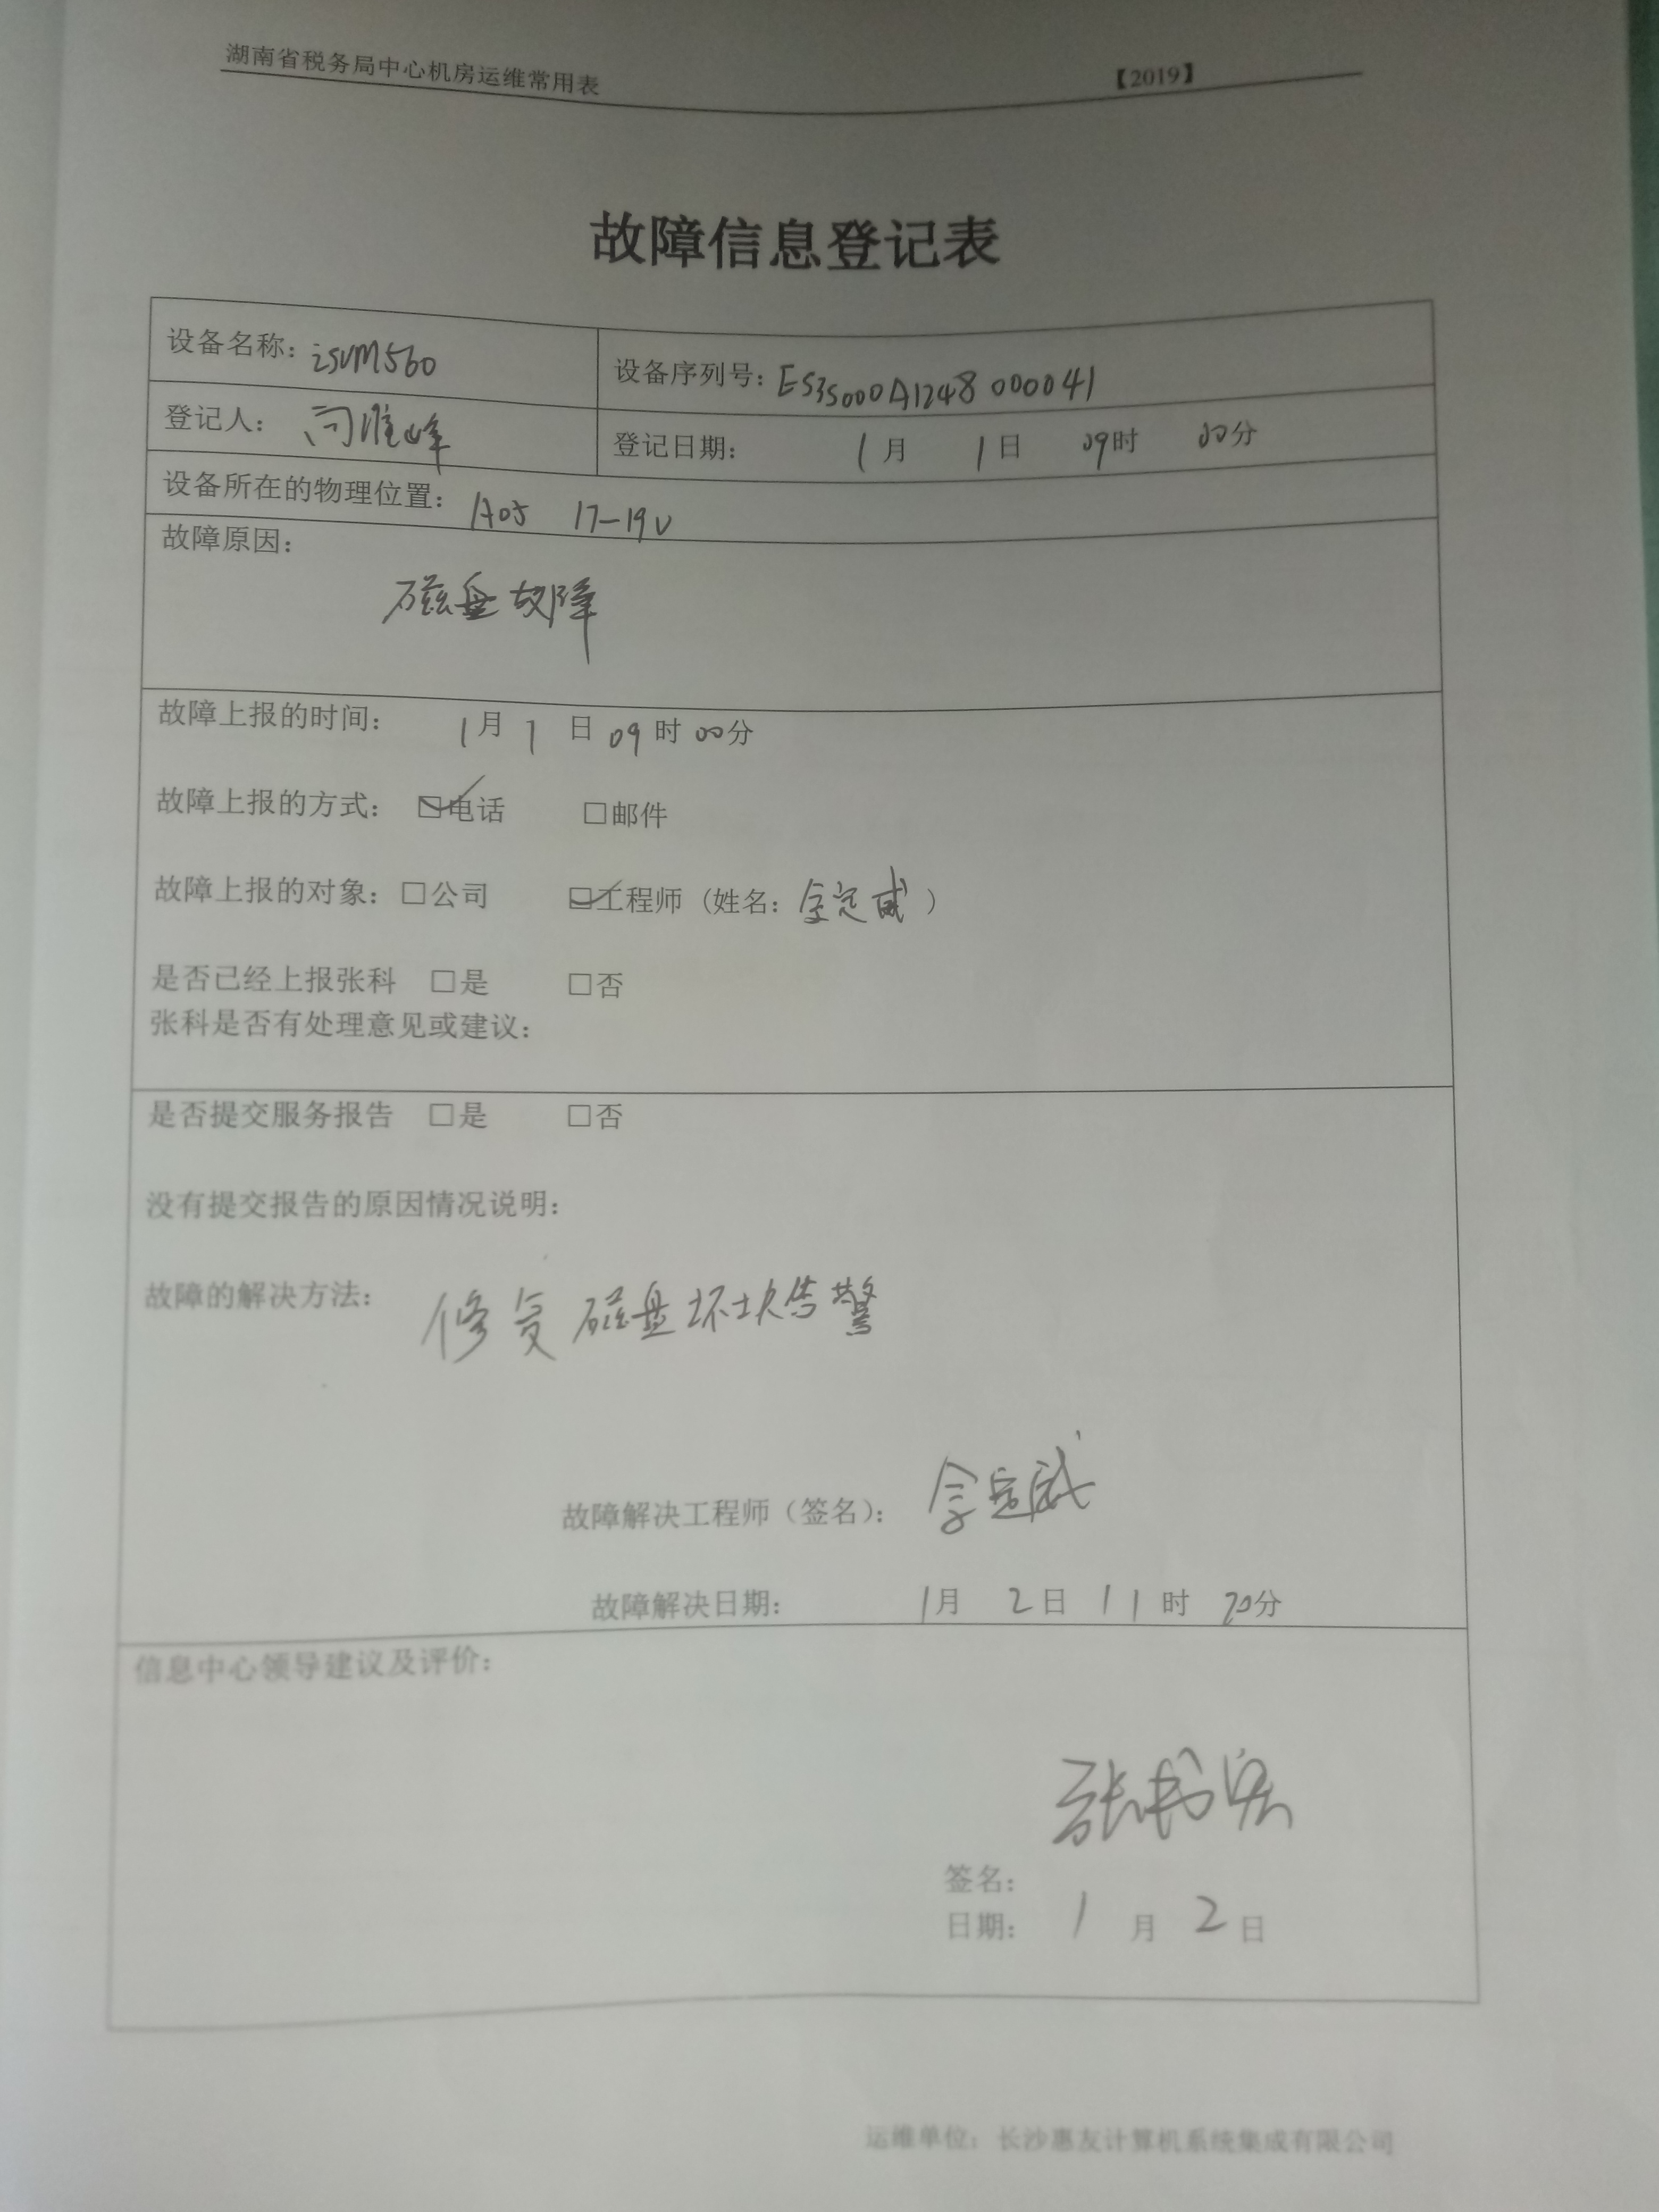 湖南省税务局中心机房运维常用表 【2019】
故障信息登记表
设备名称：isVM560 设备序列号：ES3S000A1248000041
登记人： 登记日期： 1月 1日 09时 00分
设备所在的物理位置：A05 17-19U
故障原因：
磁盘故障
故障上报的时间： 1月1日09时00分
故障上报的方式：☑电话 □邮件
故障上报的对象：□公司 ☑工程师（姓名： 定威）
是否已经上报张科 □是 □否
张科是否有处理意见或建议：
是否提交服务报告 □是 □否
没有提交报告的原因情况说明：
故障的解决方法： 修复磁盘坏块告警
故障解决工程师（签名）： 定威
故障解决日期： 1月 2日 11时 20分
信息中心领导建议及评价：
张书
签名：
日期： 1月2日
运维单位：长沙惠友计算机系统集成有限公司